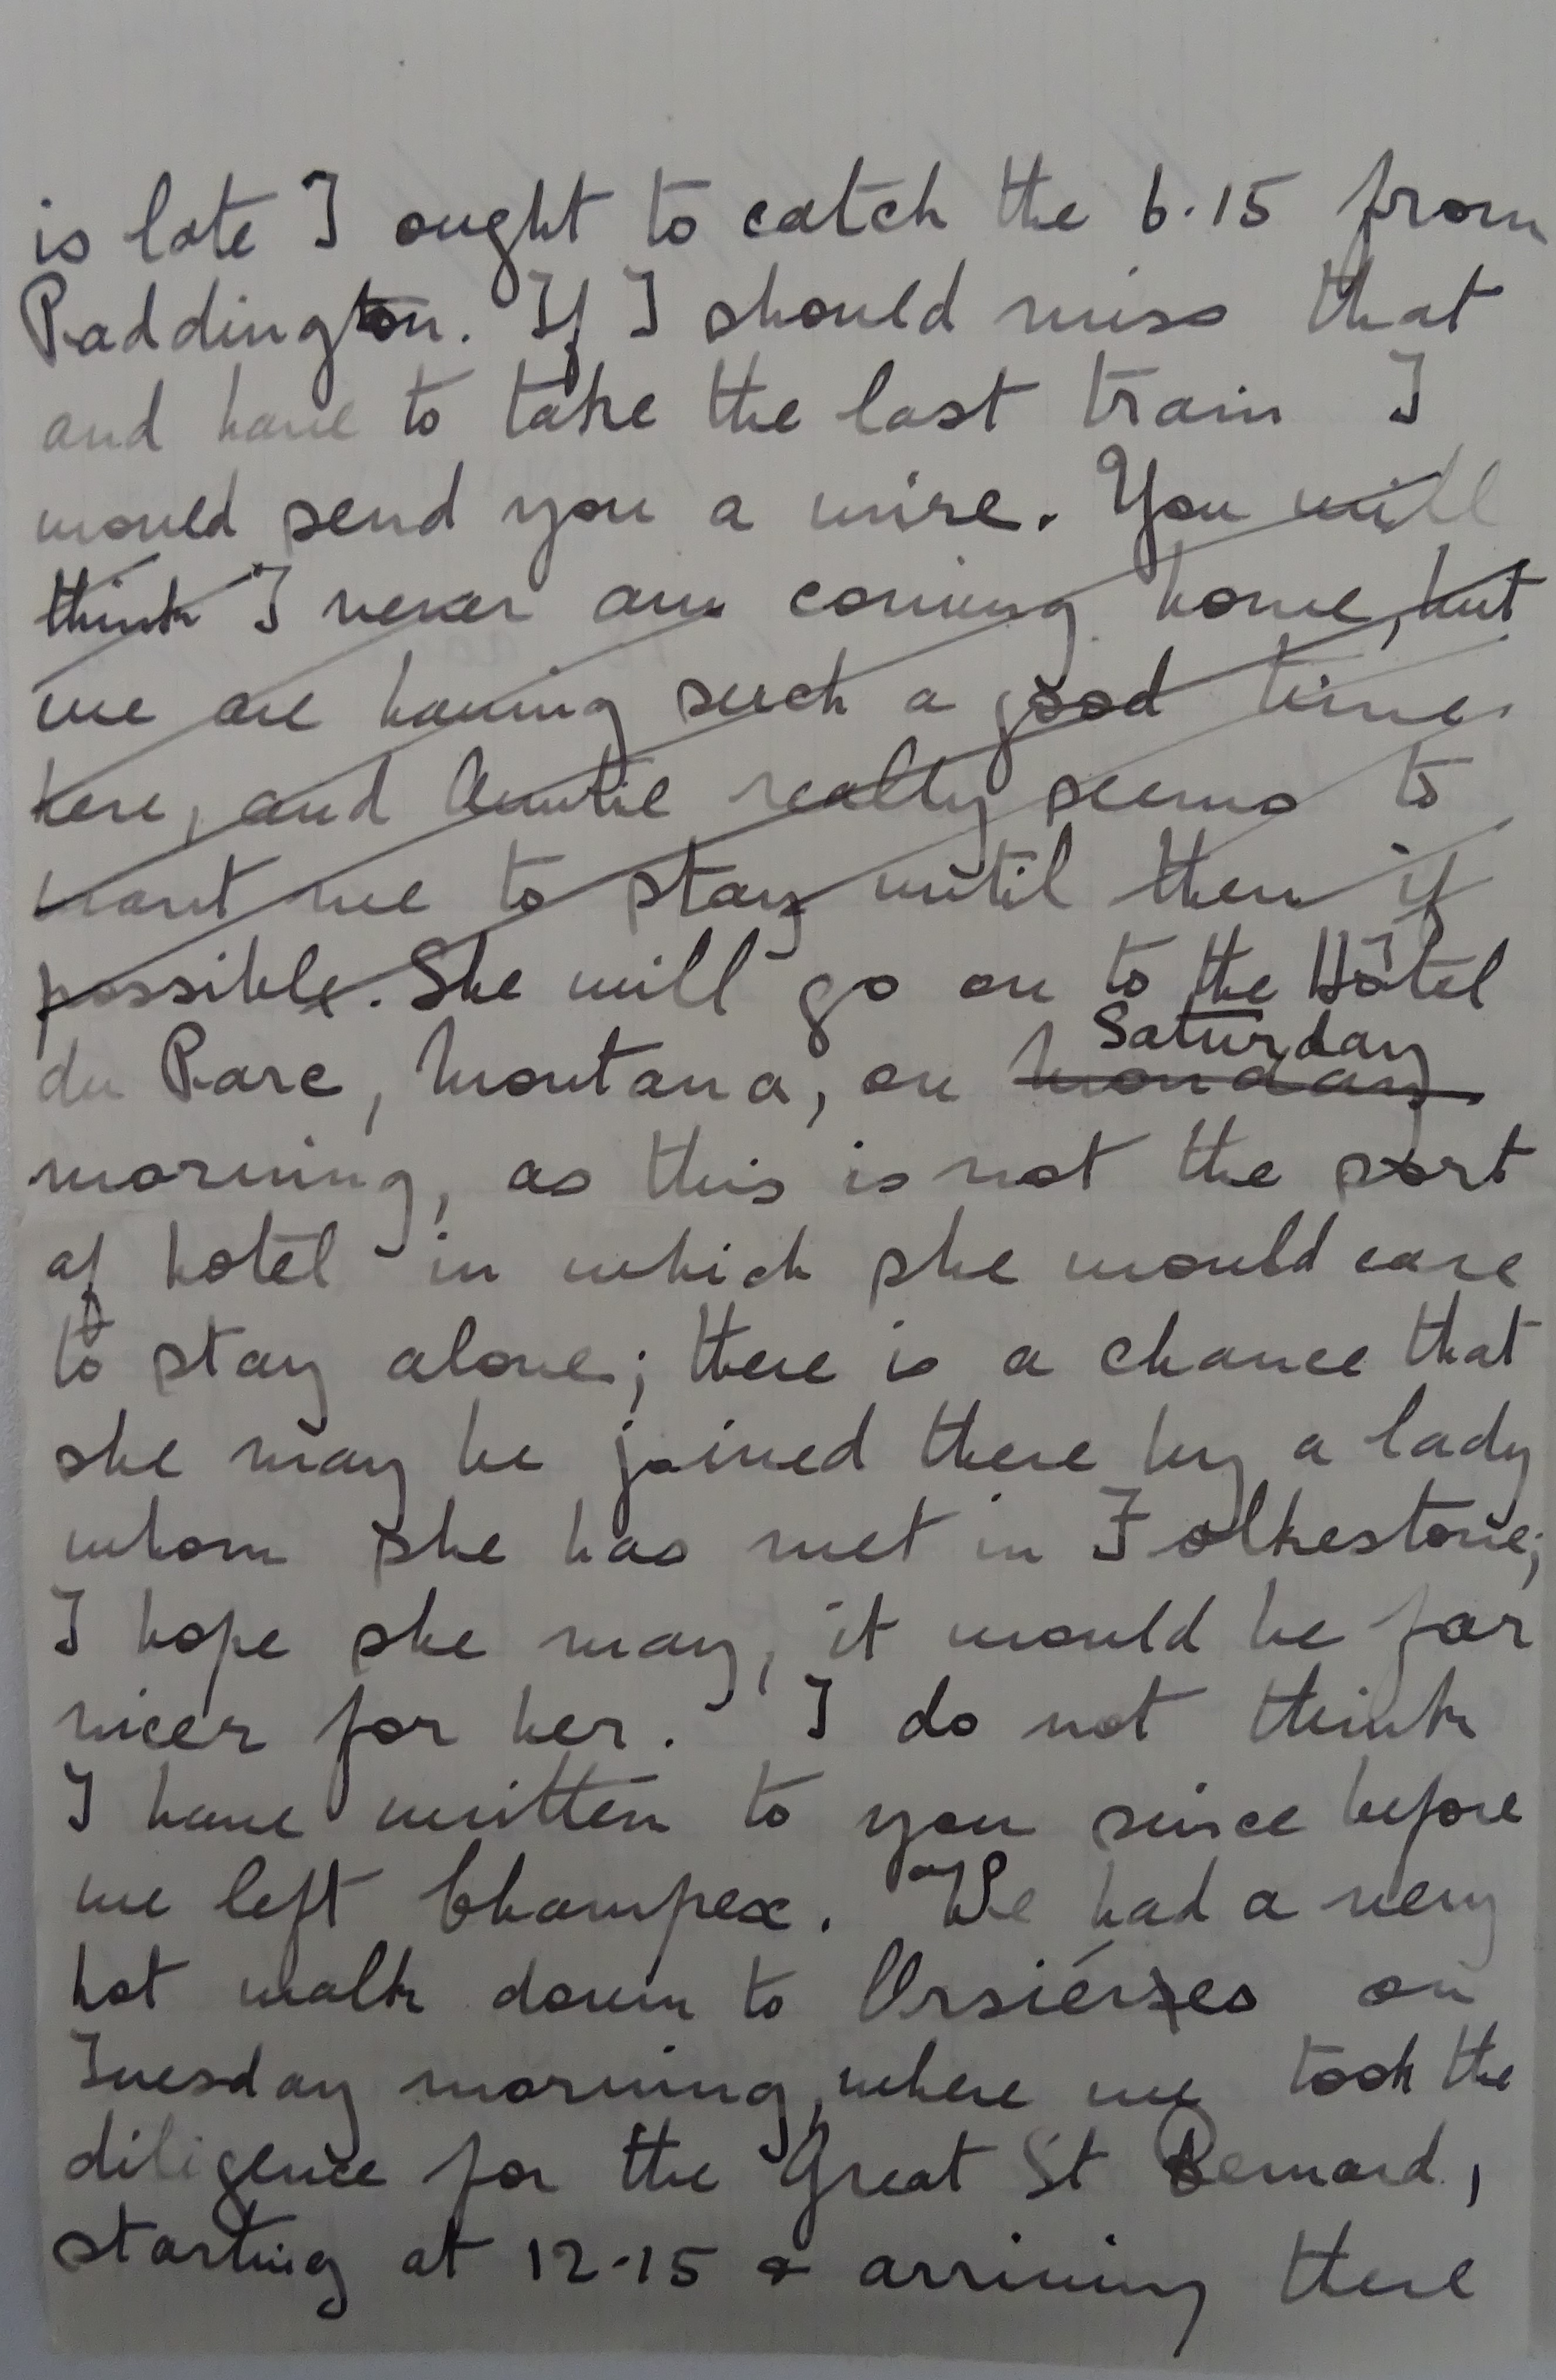 is late I ought to catch the 6.15 from
Paddington. If I should miss that
and have to take the last train I
would send you a wire. You will
think I never am coming home, but
we are having such a good time
here, and Auntie really seems to
want me to stay until then if
possible. She will go on to the Hôtel
Saturday
du Parc, Montana, on Monday
morning, as this is not the sort
of hotel in which she would care
to stay alone; there is a chance that
she may be joined there by a lady
whom she has met in Folkestone;
I hope she may, it would be far
nicer for her. I do not think
I have written to you since before
we left Champex. We had a very
hot walk down to Orsiéres on
Tuesday morning, where we took the
diligence for the Great St Bernard,
starting at 12.15 & arriving there